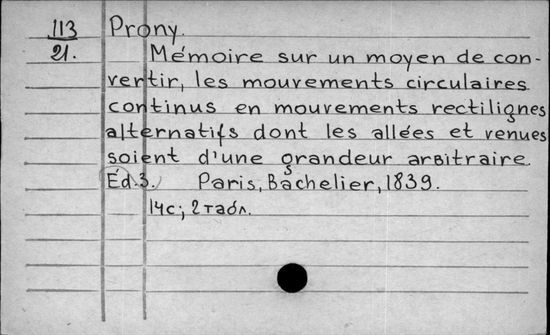 113 Prony.
21. Mémoire sur un moyen de con-
vertir, les mouvements circulaires
continus en mouvements rectilignes
alternatifs dont les allées et venues
soient d'une grandeur arbitraire.
Éd.3. Paris, Bachelier, 1839.
14c; 2 табл.